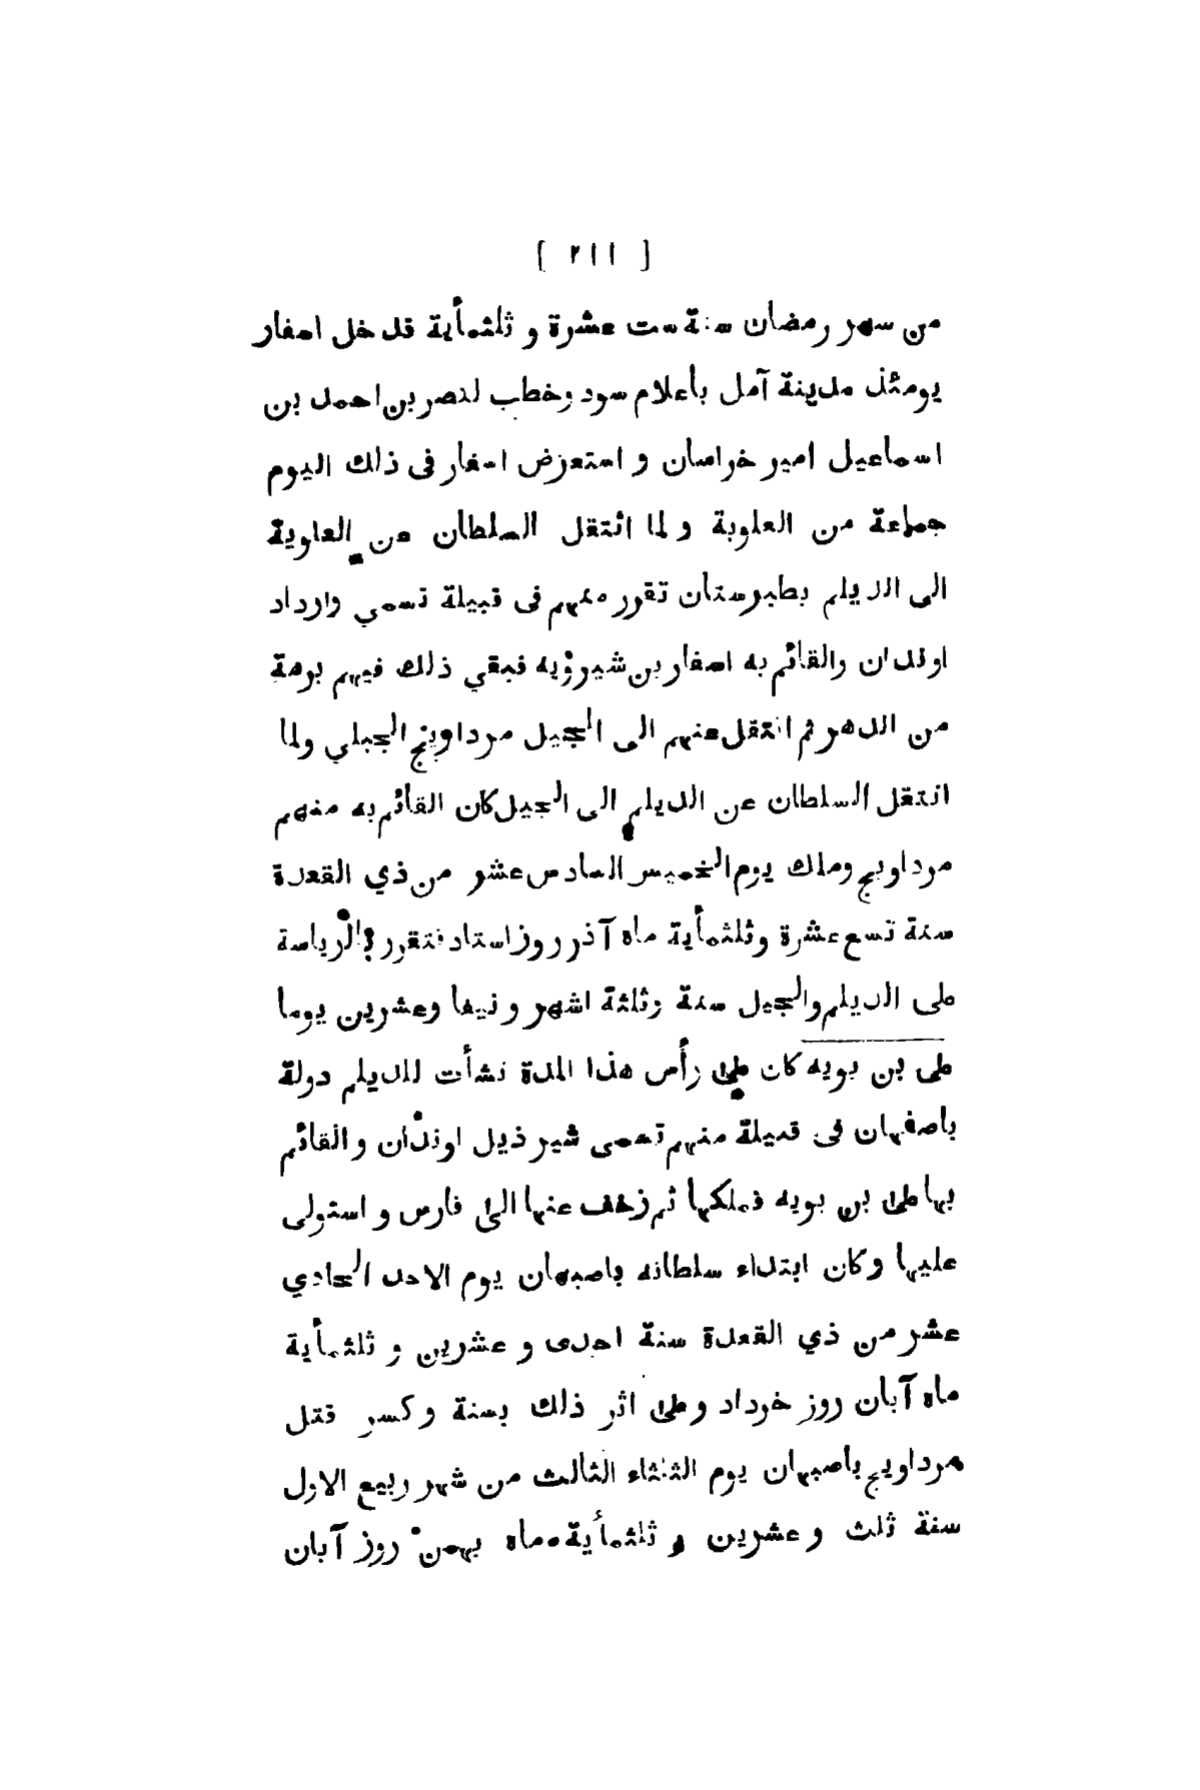 [ ٢١١ ]
من سهر رمضان سنة ست عشرة و ثلثمأية قد خل اسفار
يومئذ مدينة آمل بأعلام سود وخطب لنصر بن احمد بن
اسماعيل امير خراسان و استعرض اسفار فى ذلك اليوم
جماعة من العلوية و لما انتقل السلطان عن العلوية
الى الديلم بطبرستان تقرر منهم فى قبيلة تسمي وارداد
اوندان والقائم به اسفار بن شيرؤيه فبقي ذلك فيهم برهة
من الدهر ثم انتقل عنهم الى الجيل مرداويج الجبلي ولما
انتقل السلطان عن الديلم الى الجيل كان القائم به منهم
مرداويج وملك يوم الخميس السادس عشر من ذي القعدة
سنة تسع عشرة وثلثمأية ماه آذر روز استاد فتقرر بالرياسة
على الديلم والجيل سنة وثلثة اشهر و نيفا وعشرين يوما
على بن بويه كان على رأس هذا المدة نشأت للديلم دولة
باصفهان فى قبيلة منهم تسمى شير ذيل اوندان و القائم
بها على بن بويه فملكها ثم زحف عنها الى فارس و استولى
عليها وكان ابتداء سلطانه باصبهان يوم الاحد الحادي
عشر من ذي القعدة سنة احدى و عشرين و ثلثمأية
ماه آبان روز خرداد وعلى اثر ذلك بسنة و كسر قتل
مرداويج باصبهان يوم الثلثاء الثالث من شهر ربيع الاول
سنة ثلث و عشرين و ثلثمأية ماه بهمن روز آبان